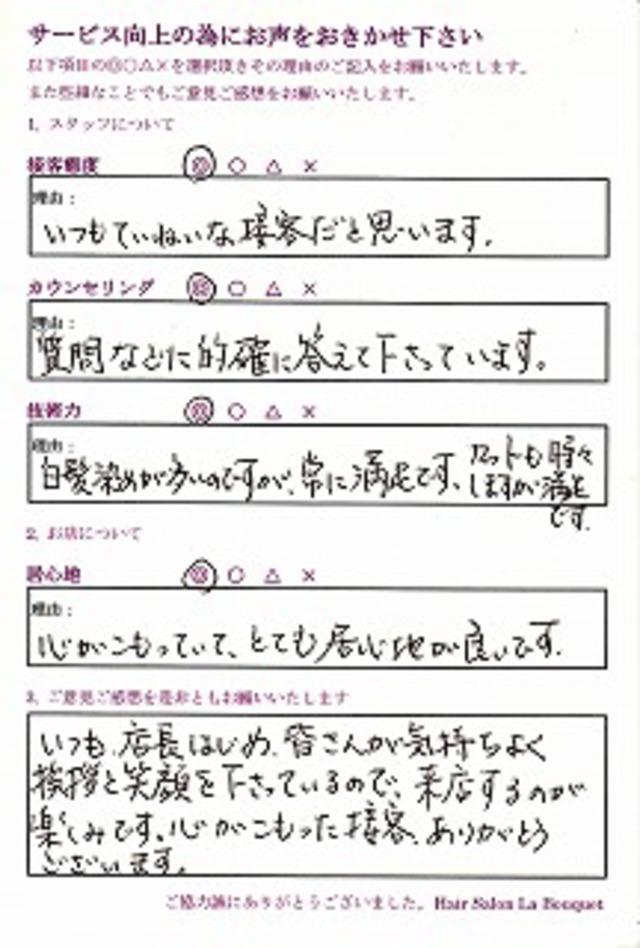 サービス向上の為にお声をおきかせ下さい
以下項目の◎○△×を選択頂きその理由のご記入をお願いいたします。
また些細なことでもご意見ご感想をお願いいたします。
1, スタッフについて
接客態度 ◎ ○ △ ×
理由：
いつもていねいな接客だと思います。
カウンセリング ◎ ○ △ ×
理由：
質問などに的確に答えて下さっています。
技術力 ◎ ○ △ ×
理由：
白髪染めが多いのですが、常に満足です、カットも時々
しますが満足
です。
2, お店について
居心地 ◎ ○ △ ×
理由：
心がこもっていて、とても居心地が良いです.
3, ご意見ご感想を是非ともお願いいたします
いつも、店長はじめ、皆さんが気持ちよく
挨拶と笑顔を下さっているので、来店するのが
楽しみです。心がこもった接客、ありがとう
ございます。
ご協力誠にありがとうございました。Hair Salon La Bouquet